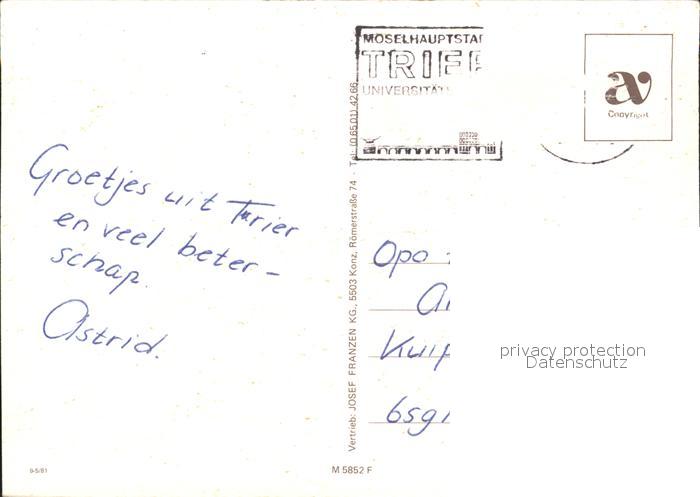 MOSELHAUPTSTA
TRIER
UNIVERSITÄT
av
Copyright
Groetjes uit Trier
en veel beter-
schap.
Astrid.
Vertrieb: JOSEF FRANZEN KG., 5503 Konz, Römerstraße 74 · Tel.: (0 65 01) 42 66
Opa
Kuip
privacy protection
Datenschutz
9-5/81
M 5852 F